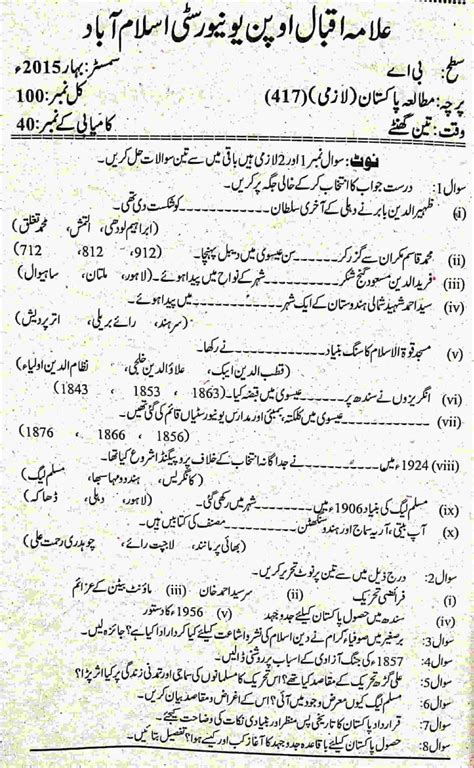 علامہ اقبال اوپن یونیورسٹی اسلام آباد
سطح: بی اے سمسٹر: بہار 2015ء
پرچہ: مطالعہ پاکستان (لازمی) (417) کل نمبر: 100
وقت: تین گھنٹے کامیابی کے نمبر: 40
نوٹ: سوال نمبر 1 اور 2 لازمی ہیں باقی میں سے تین سوالات حل کریں۔
سوال 1: درست جواب کا انتخاب کر کے خالی جگہ پر کریں۔
(i) ظہیر الدین بابر نے دہلی کے آخری سلطان ---------- کو شکست دی تھی۔
(ابراہیم لودھی، التمش، محمد تغلق)
(ii) محمد قاسم مکران سے گزر کر ---------- سن عیسوی میں دیبل پہنچا۔ (912، 812، 712)
(iii) فرید الدین مسعود گنج شکر ---------- شہر کے نواح میں پیدا ہوئے۔ (لاہور، ملتان، ساہیوال)
(iv) سید احمد شہید شمالی ہندوستان کے ایک شہر ---------- میں پیدا ہوئے۔
(سرہند، رائے بریلی، اتر پردیش)
(v) مسجد قوۃ الاسلام کا سنگ بنیاد ---------- نے رکھا۔
(قطب الدین ایبک، علاؤ الدین خلجی، نظام الدین اولیاء)
(vi) انگریزوں نے سندھ پر ---------- عیسوی میں قبضہ کیا۔ (1863، 1853، 1843)
(vii) ---------- عیسوی میں کلکتہ، بمبئی اور مدارس یونیورسٹیاں قائم کی گئی تھیں۔
(1856، 1866، 1876)
(viii) 1924ء میں ---------- نے جداگانہ انتخاب کے خلاف پروپیگنڈا شروع کیا تھا۔
(کانگریس، ہندو مہاسبھا، مسلم لیگ)
(ix) مسلم لیگ کی بنیاد 1906ء میں ---------- شہر میں رکھی گئی۔ (لاہور، دہلی، ڈھاکہ)
(x) آپ بیتی، آریہ سماج اور ہندو سنگھٹن ---------- مصنف کی کتابیں ہیں۔
(بھائی پرمانند، لاجپت رائے، چوہدری رحمت علی)
سوال 2: درج ذیل میں سے تین پر نوٹ تحریر کریں۔
(i) فرائضی تحریک (ii) سرسید احمد خان (iii) ماؤنٹ بیٹن کے عزائم
(iv) سندھ میں حصول پاکستان کیلئے جدوجہد (v) 1956ء کا دستور
سوال 3: برصغیر میں صوفیاء کرام نے دین اسلام کی نشر و اشاعت کیلئے کیا کردار ادا کیا ہے؟ جائزہ لیں۔
سوال 4: 1857ء کی جنگ آزادی کے اسباب پر روشنی ڈالیں۔
سوال 5: علی گڑھ تحریک کے مقاصد کیا تھے؟ اس تحریک کا مسلمانوں کی سماجی اور تمدنی زندگی پر کیا اثر پڑا؟
سوال 6: مسلم لیگ کیوں معرض وجود میں آئی؟ اس کے اغراض و مقاصد بیان کریں۔
سوال 7: قرارداد پاکستان کا تاریخی پس منظر اور بنیادی نکات کی وضاحت کیجئے۔
سوال 8: حصول پاکستان کیلئے باقاعدہ جدوجہد کا آغاز کب اور کیسے ہوا؟ تفصیل بتائیں۔